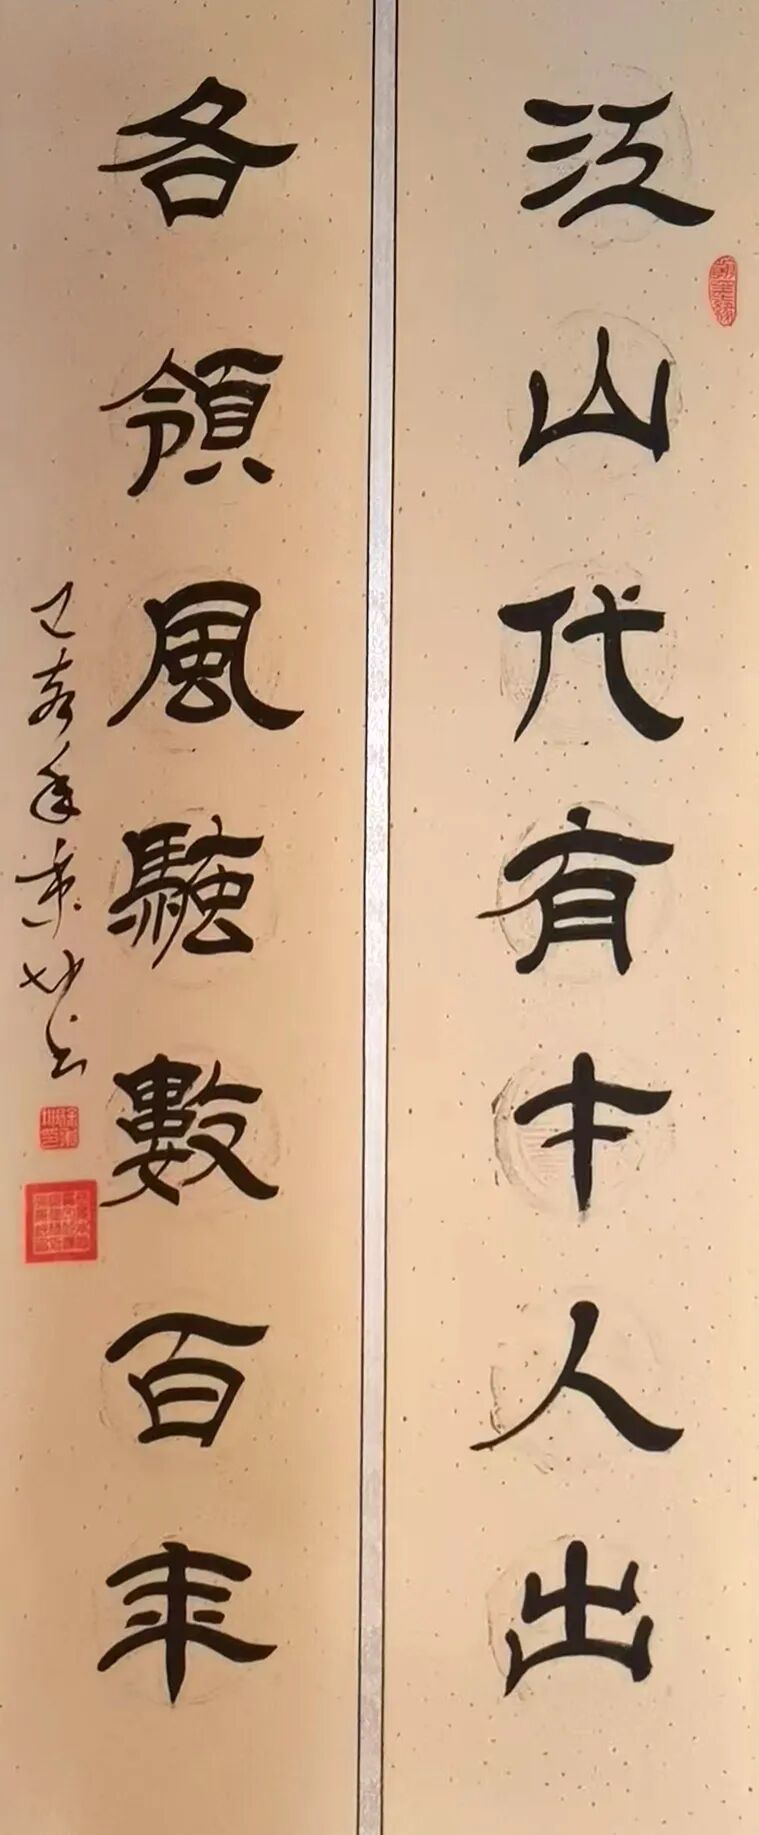 江山代有才人出
各領風騷數百年
己亥年秉书